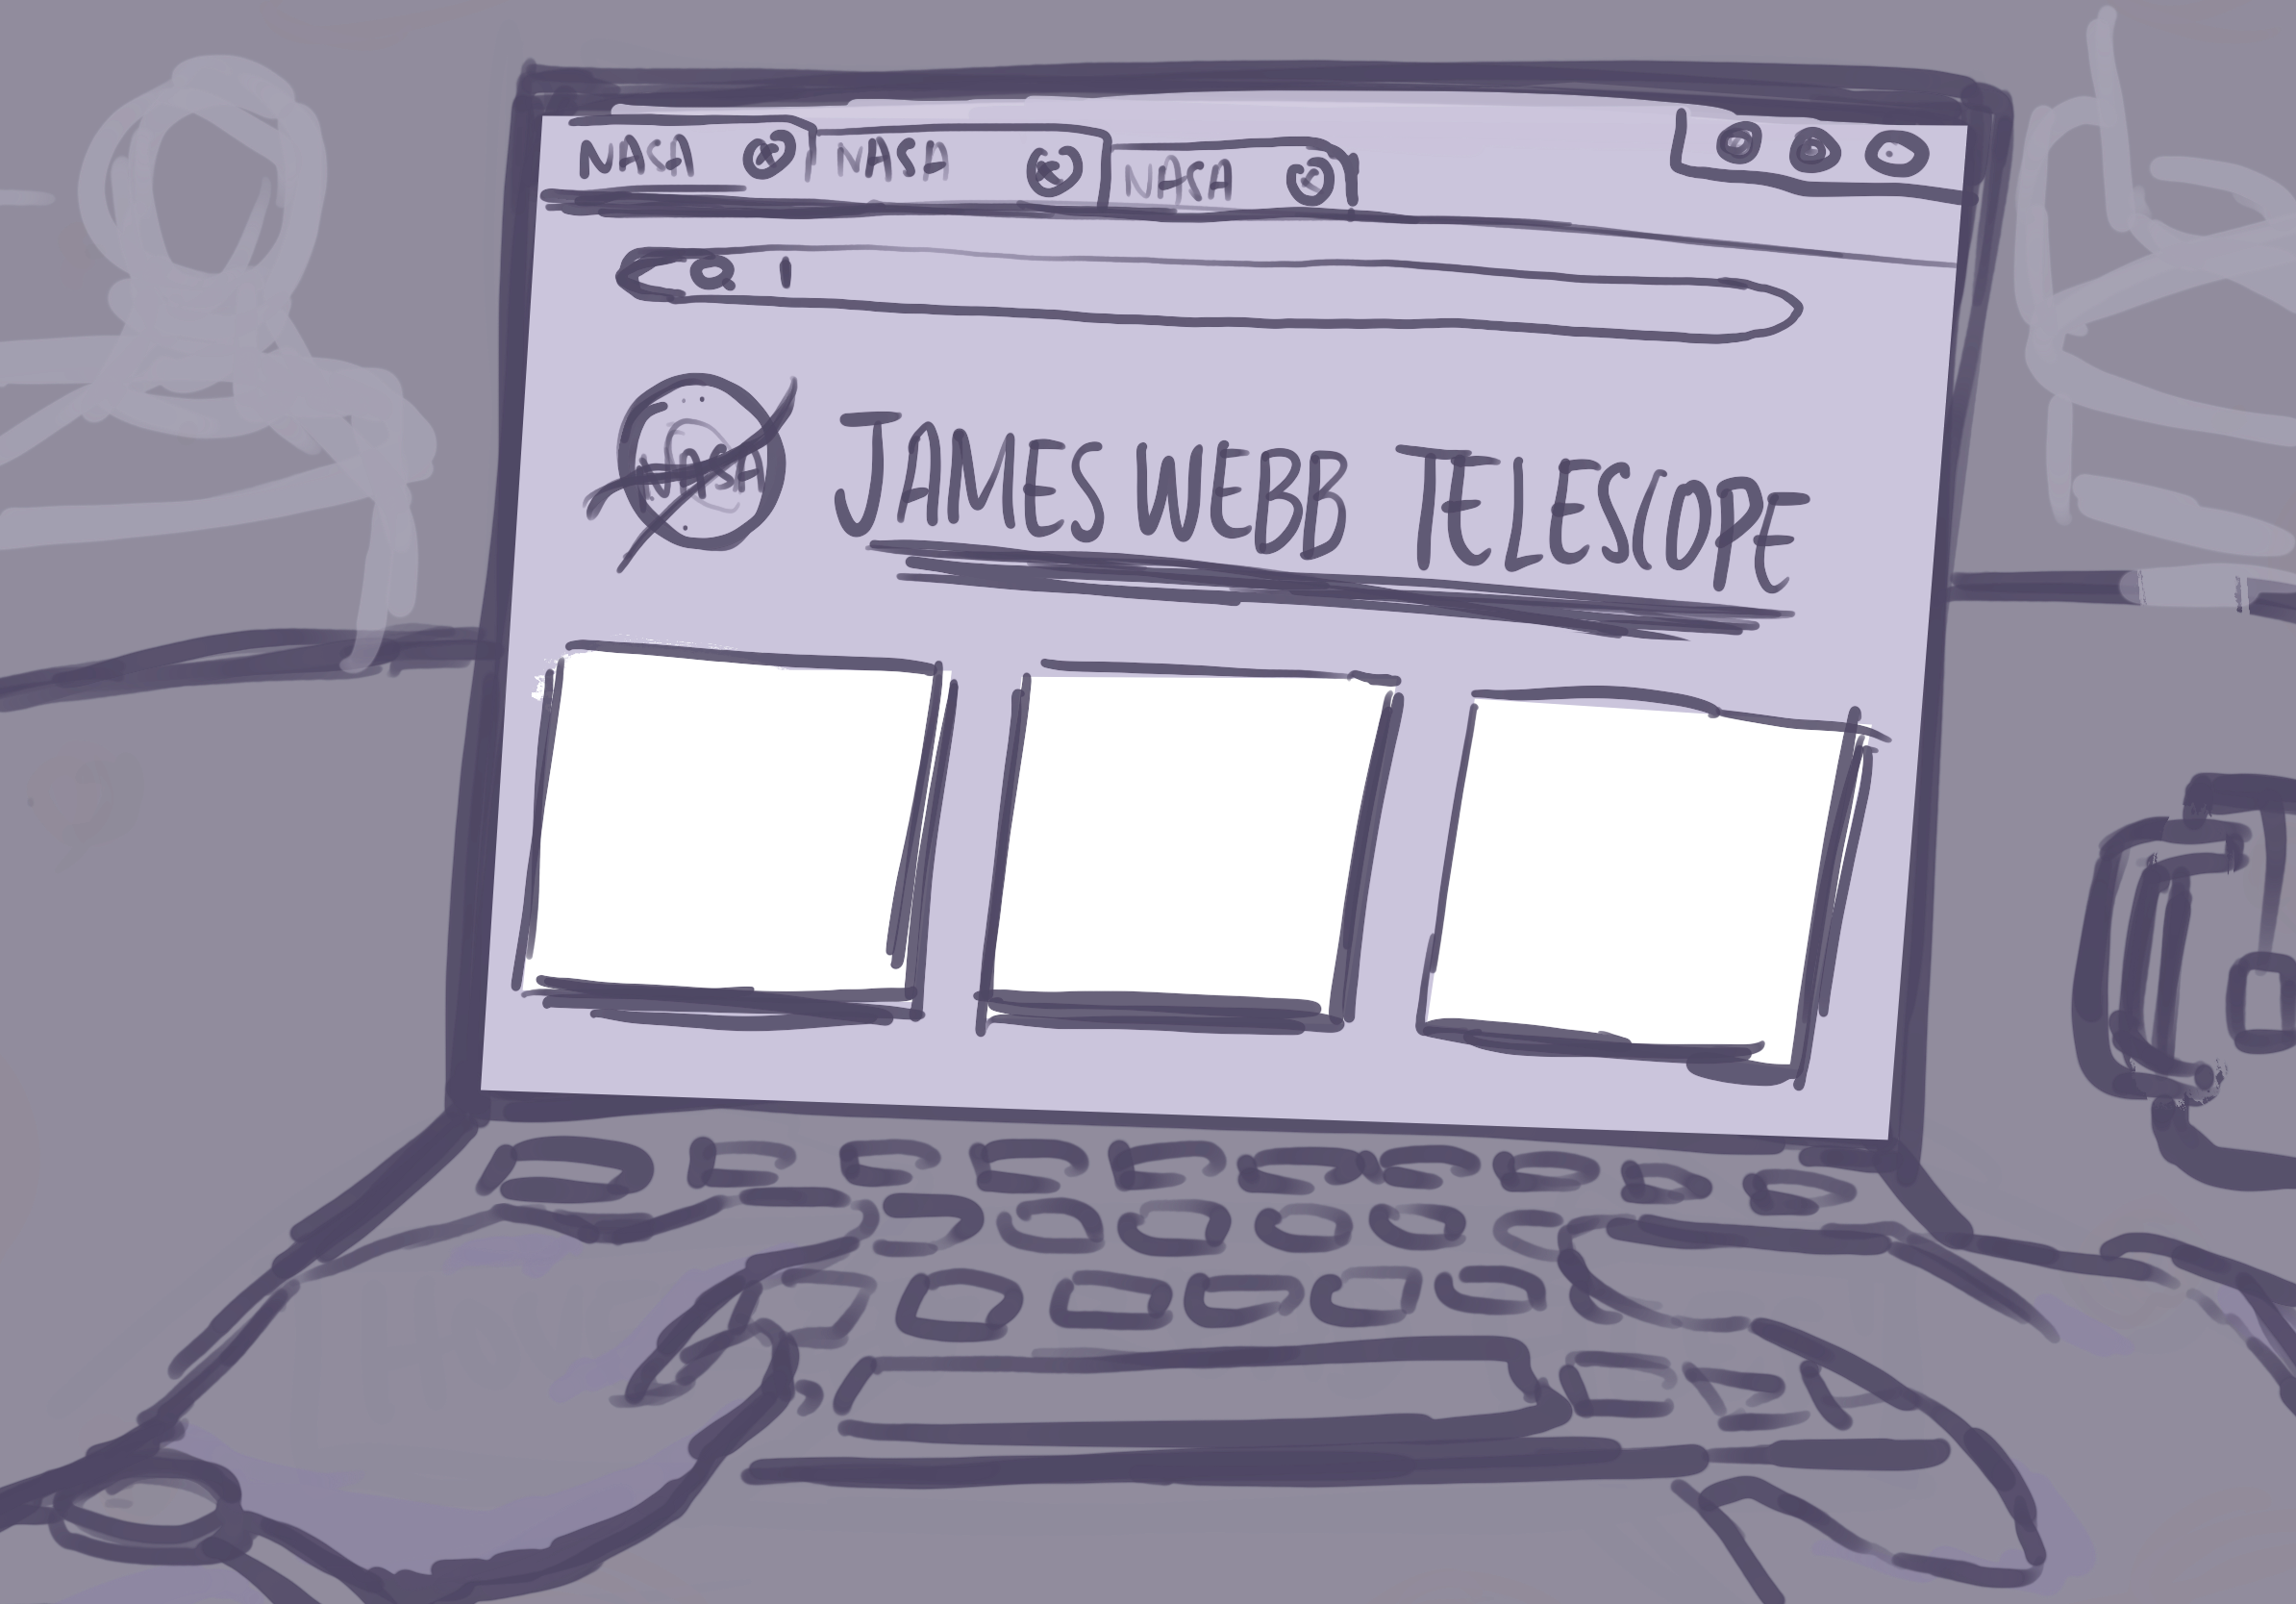 NASA NASA NASA
NASA
JAMES WEBB TELESCOPE